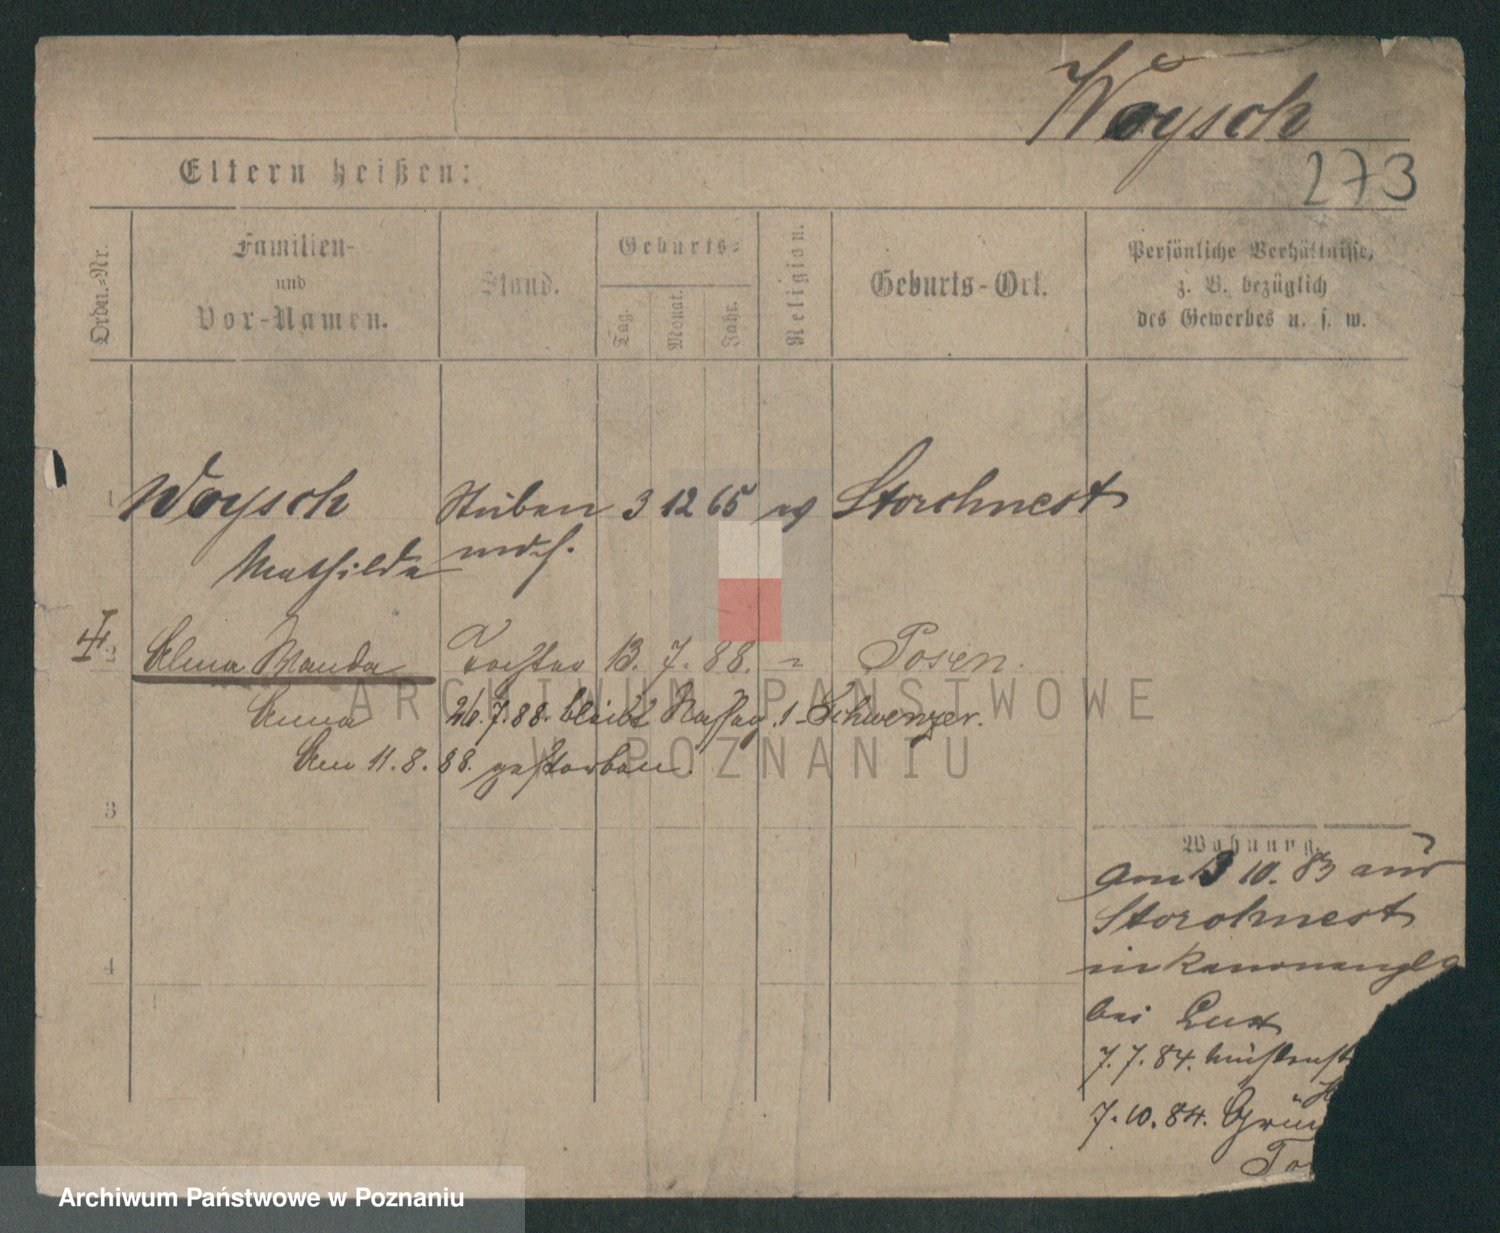 Woysch
273
Eltern heißen:
Ordn.-Nr.
Familien-
und
Vor-Namen.
Stand.
Geburts-
Tag.
Monat.
Jahr.
Religion.
Geburts-Ort.
Persönliche Verhältnisse,
z. B. bezüglich
des Gewerbes u. s. w.
1 Woysch Stuben 3 12 65 ev Storchnest
Mathilde mdch.
2 Alma Wanda Tochter 13. 7. 88. " Posen.
Anna 26.7.88. bleibt 1 Schwenzer.
Am 11.8.88. gestorben.
3
4
Wohnung.
am 3 10. 83 aus
Storchnest
in Kanonenpl
bei Lust
7.7.84.
7.10.84. Grün
Po
ARCHIWUM PAŃSTWOWE
W POZNANIU
Archiwum Państwowe w Poznaniu